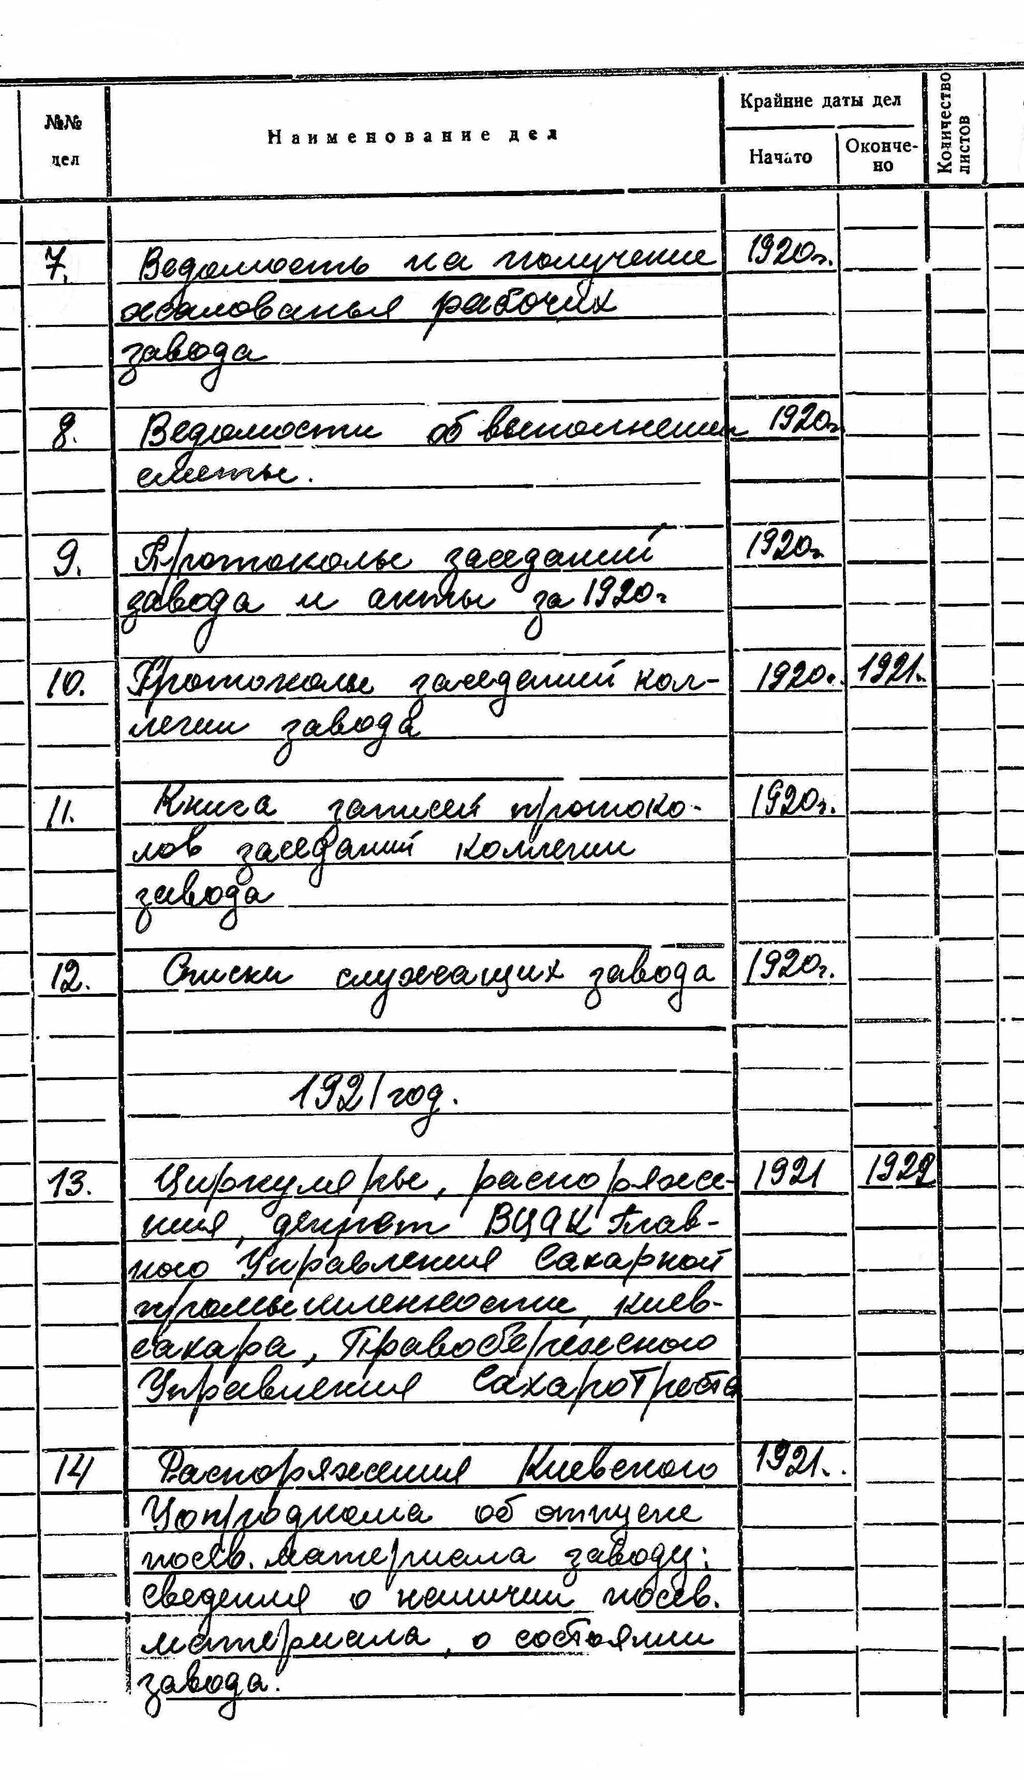 №№ дел
Наименование дел
Крайние даты дел
Начато
Окончено
Количество листов
7. Ведомость на получение 1920г.
жалованья рабочих
завода
8. Ведомости об выполнении 1920г
сметы.
9. Протоколы заседаний 1920г.
завода и акты за 1920г
10. Протоколы заседаний кол- 1920г. 1921г.
легии завода
11. Книга записей протоко- 1920г.
лов заседаний коллегии
завода
12. Списки служащих завода 1920г.
1921 год.
13. Циркуляры, распоряже- 1921 1922
ния, декрет ВЦИК Глав-
ного Управления Сахарной
промышленности, Киев-
сахара, Правобережного
Управления Сахаротреста
14 Распоряжения Киевского 1921г.
об отпуске
посев. материала заводу;
сведения о наличии посев.
материала, о состоянии
завода.